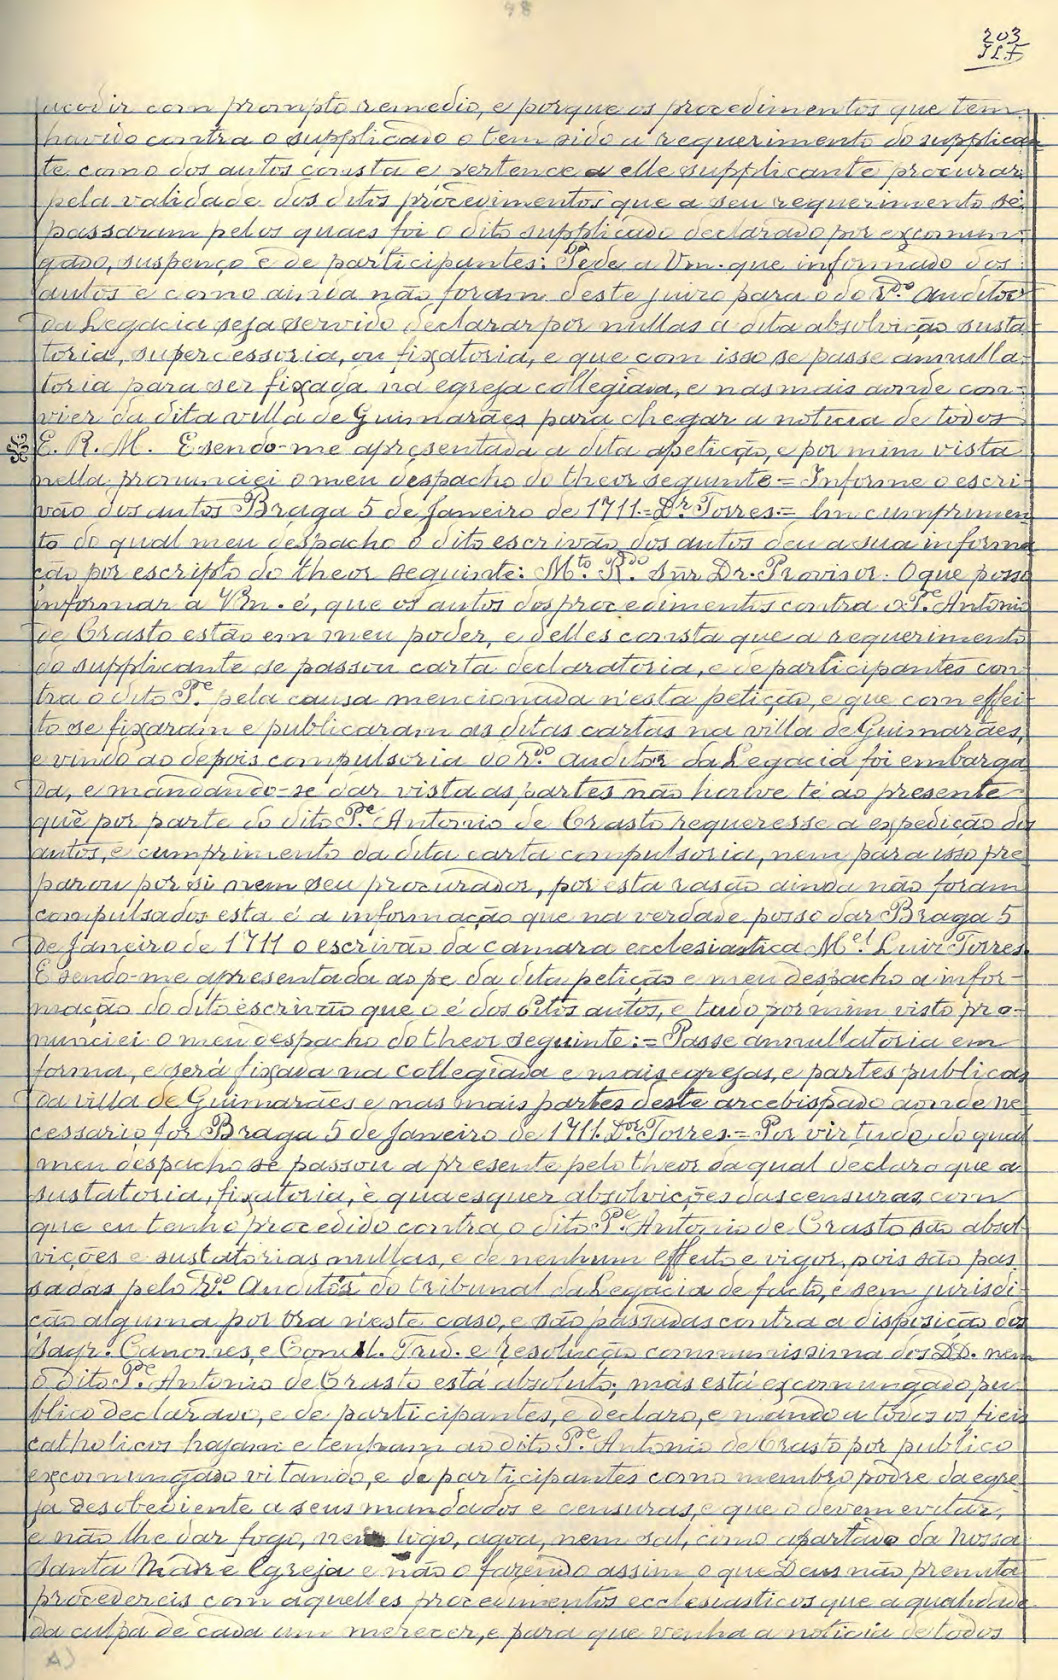 98
203
acodir com prompto remedio, e porque os procedimentos que tem
havido contra o supplicado o tem sido a requerimento do supplican
te como dos autos consta e pertence a elle supplicante procurar
pela validade dos ditos procedimentos que a seu requerimento se
passaram pelos quaes foi o dito supplicado declarado por excomun-
gado, suspenço e de participantes: Pede a Vm. que informado dos
autos e como ainda não foram deste juizo para o do Rdo. Auditor
da Legacia seja servido declarar por nullas a dita absolvição susta
toria, supercessoria, ou fixatoria, e que com isso se passe annulla-
toria para ser fixada na egreja collegiada, e nas mais aonde con-
vier da dita villa de Guimarães para chegar a noticia de todos
E. R. M. E sendo-me apresentada a dita apetição, e por mim vista
nella pronunciei o meu despacho do theor seguinte = Informe o escri-
vão dos autos Braga 5 de Janeiro de 1711 = Dr. Torres = Em cumprimen
to do qual meu despacho o dito escrivão dos autos deu a sua informa
ção por escripto do theor seguinte: Mto. Rdo. Snr Dr. Provisor. O que posso
informar a Vm. é, que os autos dos procedimentos contra o Pe. Antonio
de Crasto estão em meu poder, e delles consta que a requerimento
do supplicante se passou carta declaratoria, e de participantes con
tra o dito Pe. pela causa mencionada n'esta petição, e que com effei-
to se fixaram e publicaram as ditas cartas na villa de Guimarães,
e vindo ao depois compulsoria do Rdo. Auditor da Legacia foi embarga
da, e mandando-se dar vista as partes não houve té ao presente
quē por parte do dito Pe. Antonio de Crasto requeresse a expedição dos
autos, e cumprimento da dita carta compulsoria, nem para isso pre
parou por si nem seu procurador, por esta rasão ainda não foram
compulsados esta é a informação que na verdade posso dar Braga 5
de Janeiro de 1711 o escrivão da camara ecclesiastica Mel. Luiz Torres.
E sendo-me apresentada ao pe da dita petição e meu despacho a infor-
mação do dito escrivão que o é dos ditos autos, e tudo por mim visto pro-
nunciei o meu despacho do theor seguinte: = Passe annullatoria em
forma, e será fixada na collegiada e mais egrejas, e partes publicas
da villa de Guimarães e nas mais partes deste arcebispado aonde ne
cessario for Braga 5 de Janeiro de 1711. Dor. Torres. = Por virtude do qual
meu despacho se passou a presente pelo theor da qual declaro que a
sustatoria, fixatoria, e quaesquer absolvições das censuras, com
que eu tenho procedido contra o dito Pe. Antonio de Crasto são absol
vições e sustatorias nullas, e de nenhum effeito e vigor, pois são pas
sadas pelo Rdo. Auditor do tribunal da Legacia de facto, e sem jurisdi-
ção alguma por ora n'este caso, e são passadas contra a disposição dos
Sagr. Canones, e Concil. Trid. e resolução communissima dos DD. nem
o dito Pe. Antonio de Crasto está absoluto; mas está excomungado pu-
blico declarado, e de participantes, e declaro, e mando a todos os fieis
catholicos hajam e tenham ao dito Pe. Antonio de Crasto por publico
excomungado vitando, e de participantes como membro podre da egre
ja desobediente a seus mandados e censuras, e que o devem evitar,
e não lhe dar fogo, nem logo, agoa, nem sal, como apartado da Nossa
Santa Madre Egreja e não o fazendo assim o que Deus não premita
procedereis com aquelles procedimentos ecclesiasticos que a qualidade
da culpa de cada um merecer, e para que venha a noticia de todos
A)